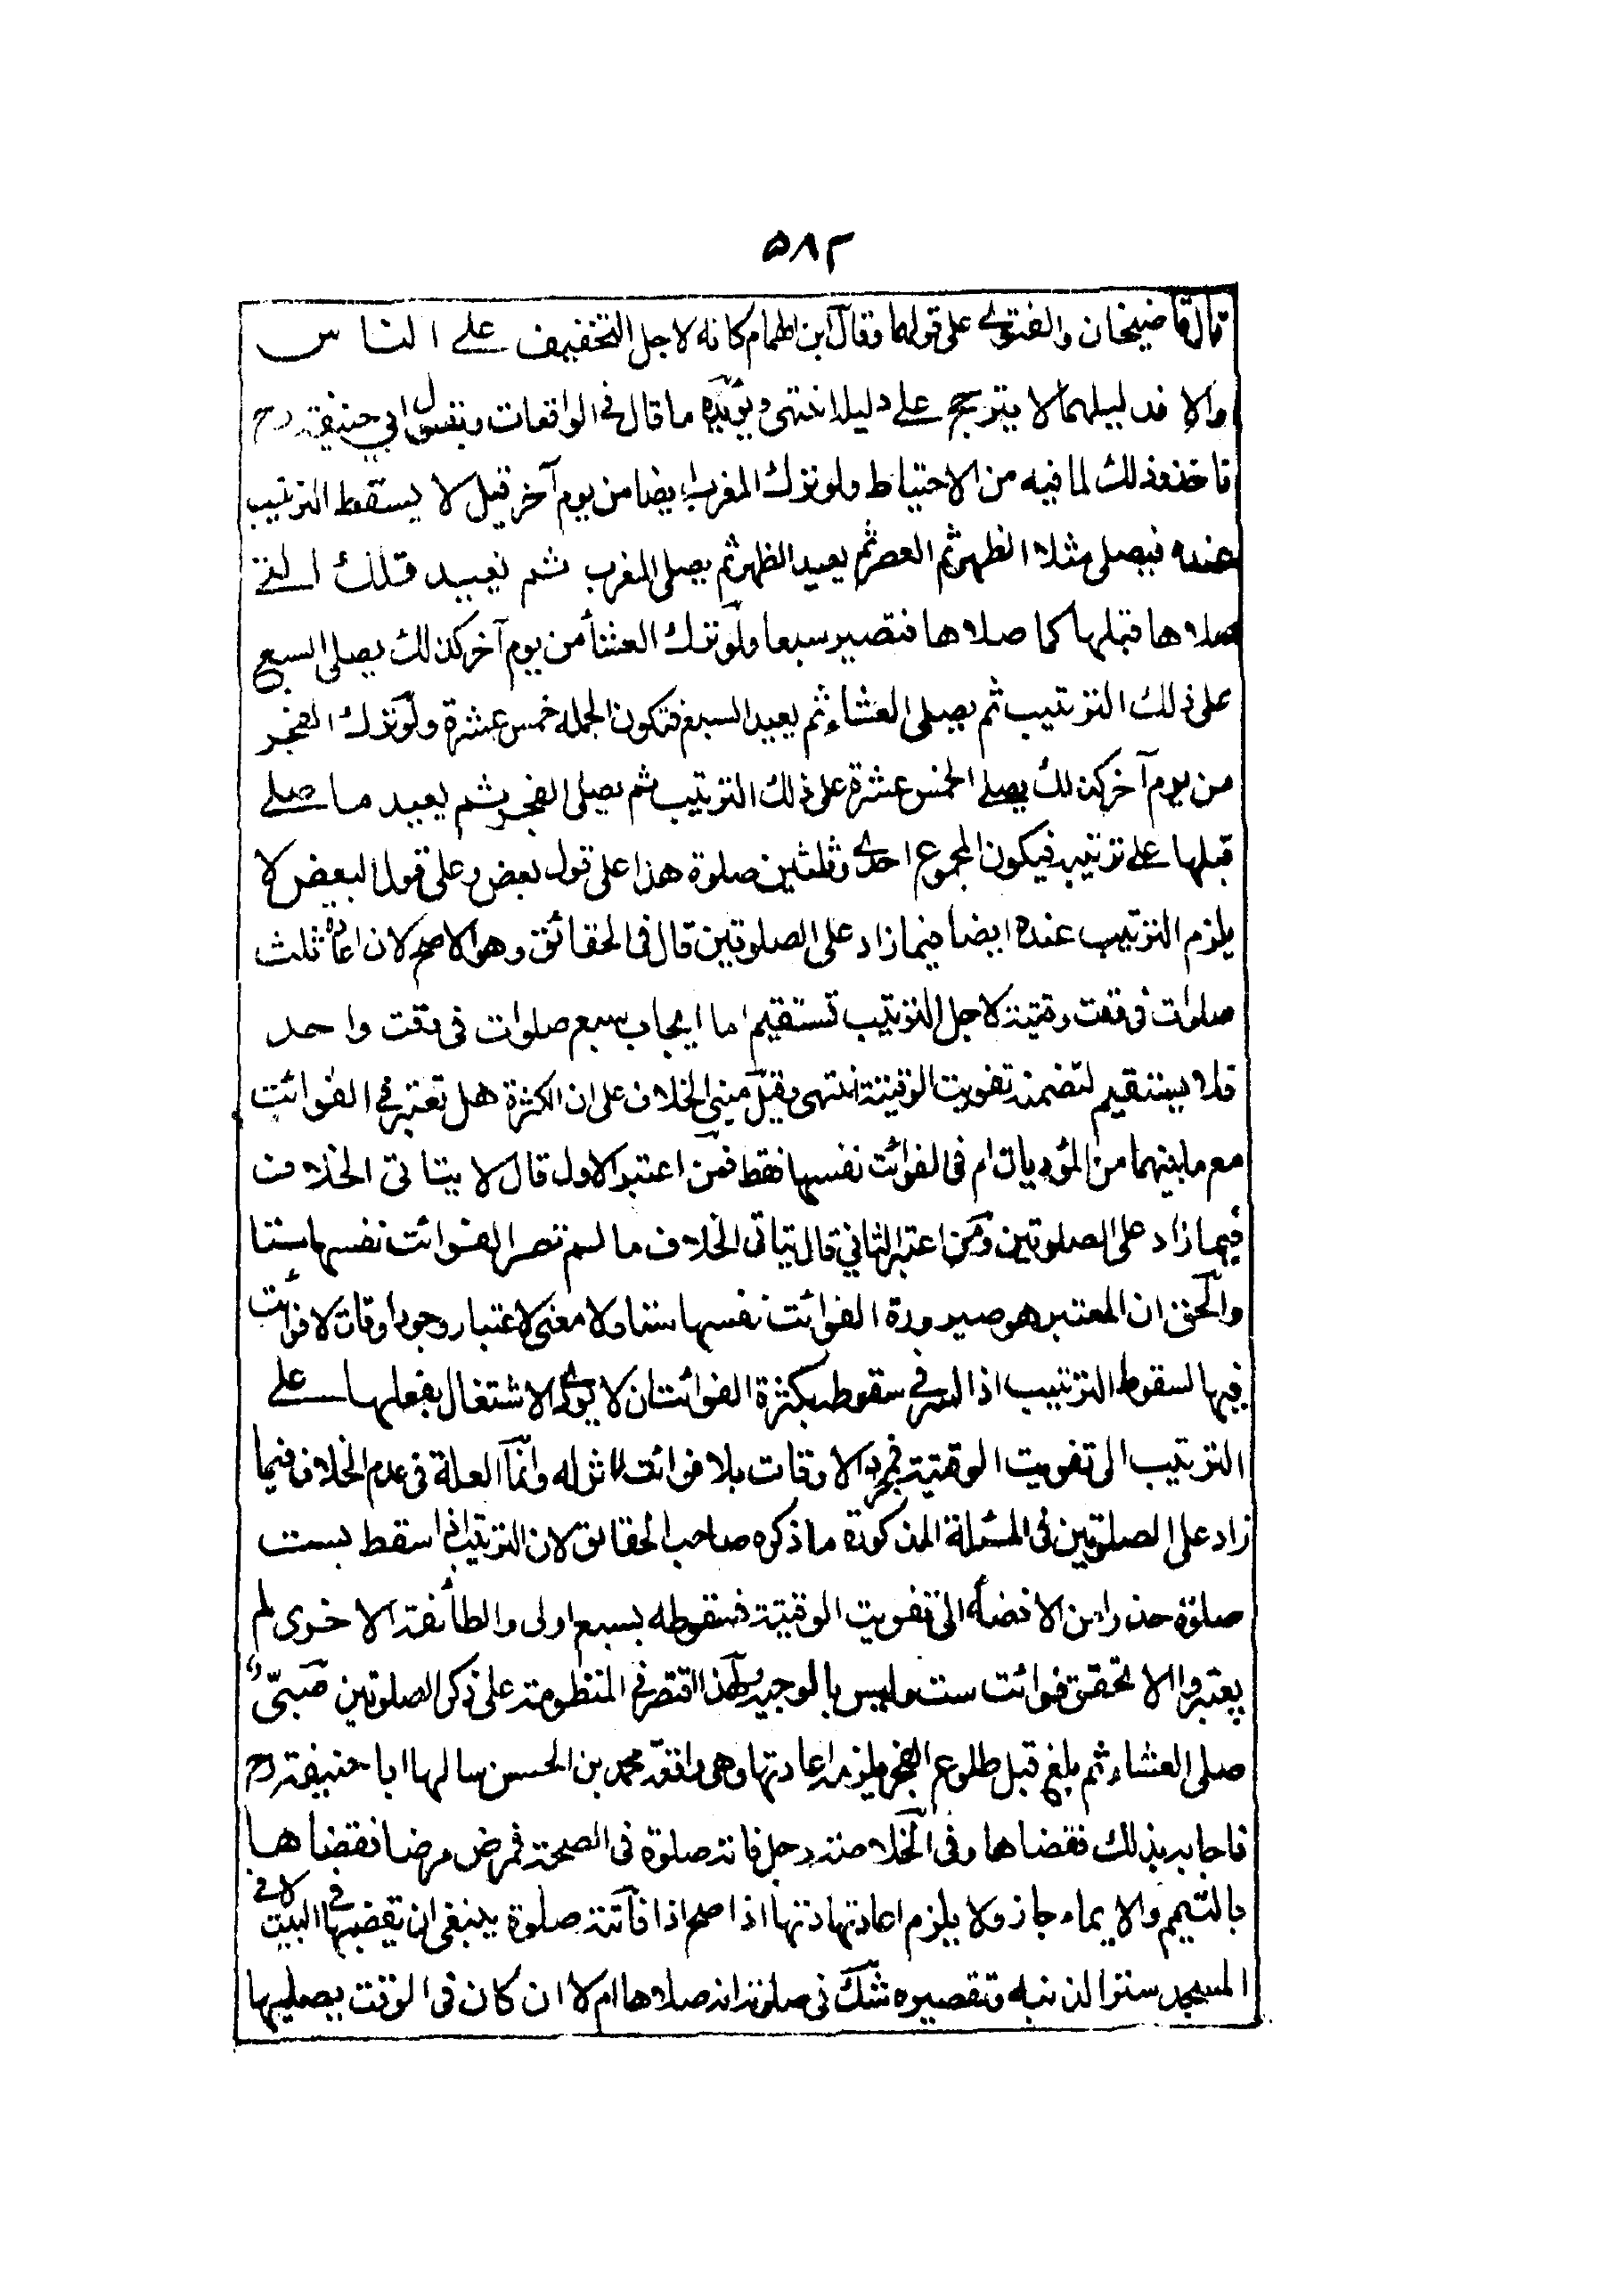 ۵۸۲
قال قاضيخان والفتوى على قولهما وقال ابن الهمام كانه لاجل التخفيف على الناس
والا فدليلهما لا يترجح على دليله انتهى ويؤيده ما قال فى الواقعات وبقول ابي حنيفة رح
ناخذ وذلك لما فيه من الاحتياط ولو ترك المغرب ايضا من يوم آخر قيل لا يسقط الترتيب
عنده فيصلى مثلا الظهر ثم العصر ثم يعيد الظهر ثم يصلى المغرب ثم يعيد تلك التى
صلاها قبلها كما صلاها فتصير سبعا ولو ترك العشاء من يوم آخر كذلك يصلى السبع
على ذلك الترتيب ثم يصلى العشاء ثم يعيد السبع فتكون الجملة خمس عشرة ولو ترك الفجر
من يوم آخر كذلك يصلى الخمس عشرة على ذلك الترتيب ثم يصلى الفجر ثم يعيد ما صلى
قبلها على ترتيبه فيكون المجموع احدى وثلثين صلوة هذا على قول بعض وعلى قول البعض لا
يلزم الترتيب عنده ايضا فيما زاد على الصلوتين قال فى الحقائق وهو الاصح لان اعادة ثلث
صلوات فى وقت وقتية لاجل الترتيب تستقيم اما ايجاب سبع صلوات فى وقت واحد
فلا يستقيم لتضمنه تفويت الوقتية انتهى وقيل مبنى الخلاف على ان الكثرة هل تعتبر فى الفوائت
مع ما بينهما من المؤديات ام فى الفوائت نفسها فقط فمن اعتبر الاول قال لا يتاتى الخلاف
فيما زاد على الصلوتين ومن اعتبر الثاني قال يتاتى الخلاف ما لم تصر الفوائت نفسها ستا
والحق ان المعتبر هو صيرورة الفوائت نفسها ستا ولا معنى لاعتبار وجود اوقات لا فوائت
فيها لسقوط الترتيب اذا السر فى سقوطه بكثرة الفوائت ان لا يؤدى الاشتغال بفعلها على
الترتيب الى تفويت الوقتية فمجرد الاوقات بلا فوائت لا اثر له وانما العلة فى عدم الخلاف فيما
زاد على الصلوتين فى المسئلة المذكورة ما ذكره صاحب الحقائق لان الترتيب اذا سقط بست
صلوة حذرا من الافضاء الى تفويت الوقتية فسقوطه بسبع اولى والطائفة الاخرى لم
يعتبروا الا تحقق فوائت ست وليس بالوجيه ولهذا اقتصر فى المنظومة على ذكر الصلوتين صبىّ
صلى العشاء ثم بلغ قبل طلوع الفجر يلزمه اعادتها وهى واقعة محمد بن الحسن سالها ابا حنيفة رح
فاجابه بذلك فقضاها وفى الخلاصة رجل فاته صلوة فى الصحة فمرض مرضا فقضاها
بالتيمم والايماء جاز ولا يلزم اعادتها اذا صح اذا فاتته صلوة ينبغى ان يقضيها فى البيت لا فى
المسجد سترا لذنبه وتقصيره شك فى صلوته انه صلاها ام لا ان كان فى الوقت يصليها